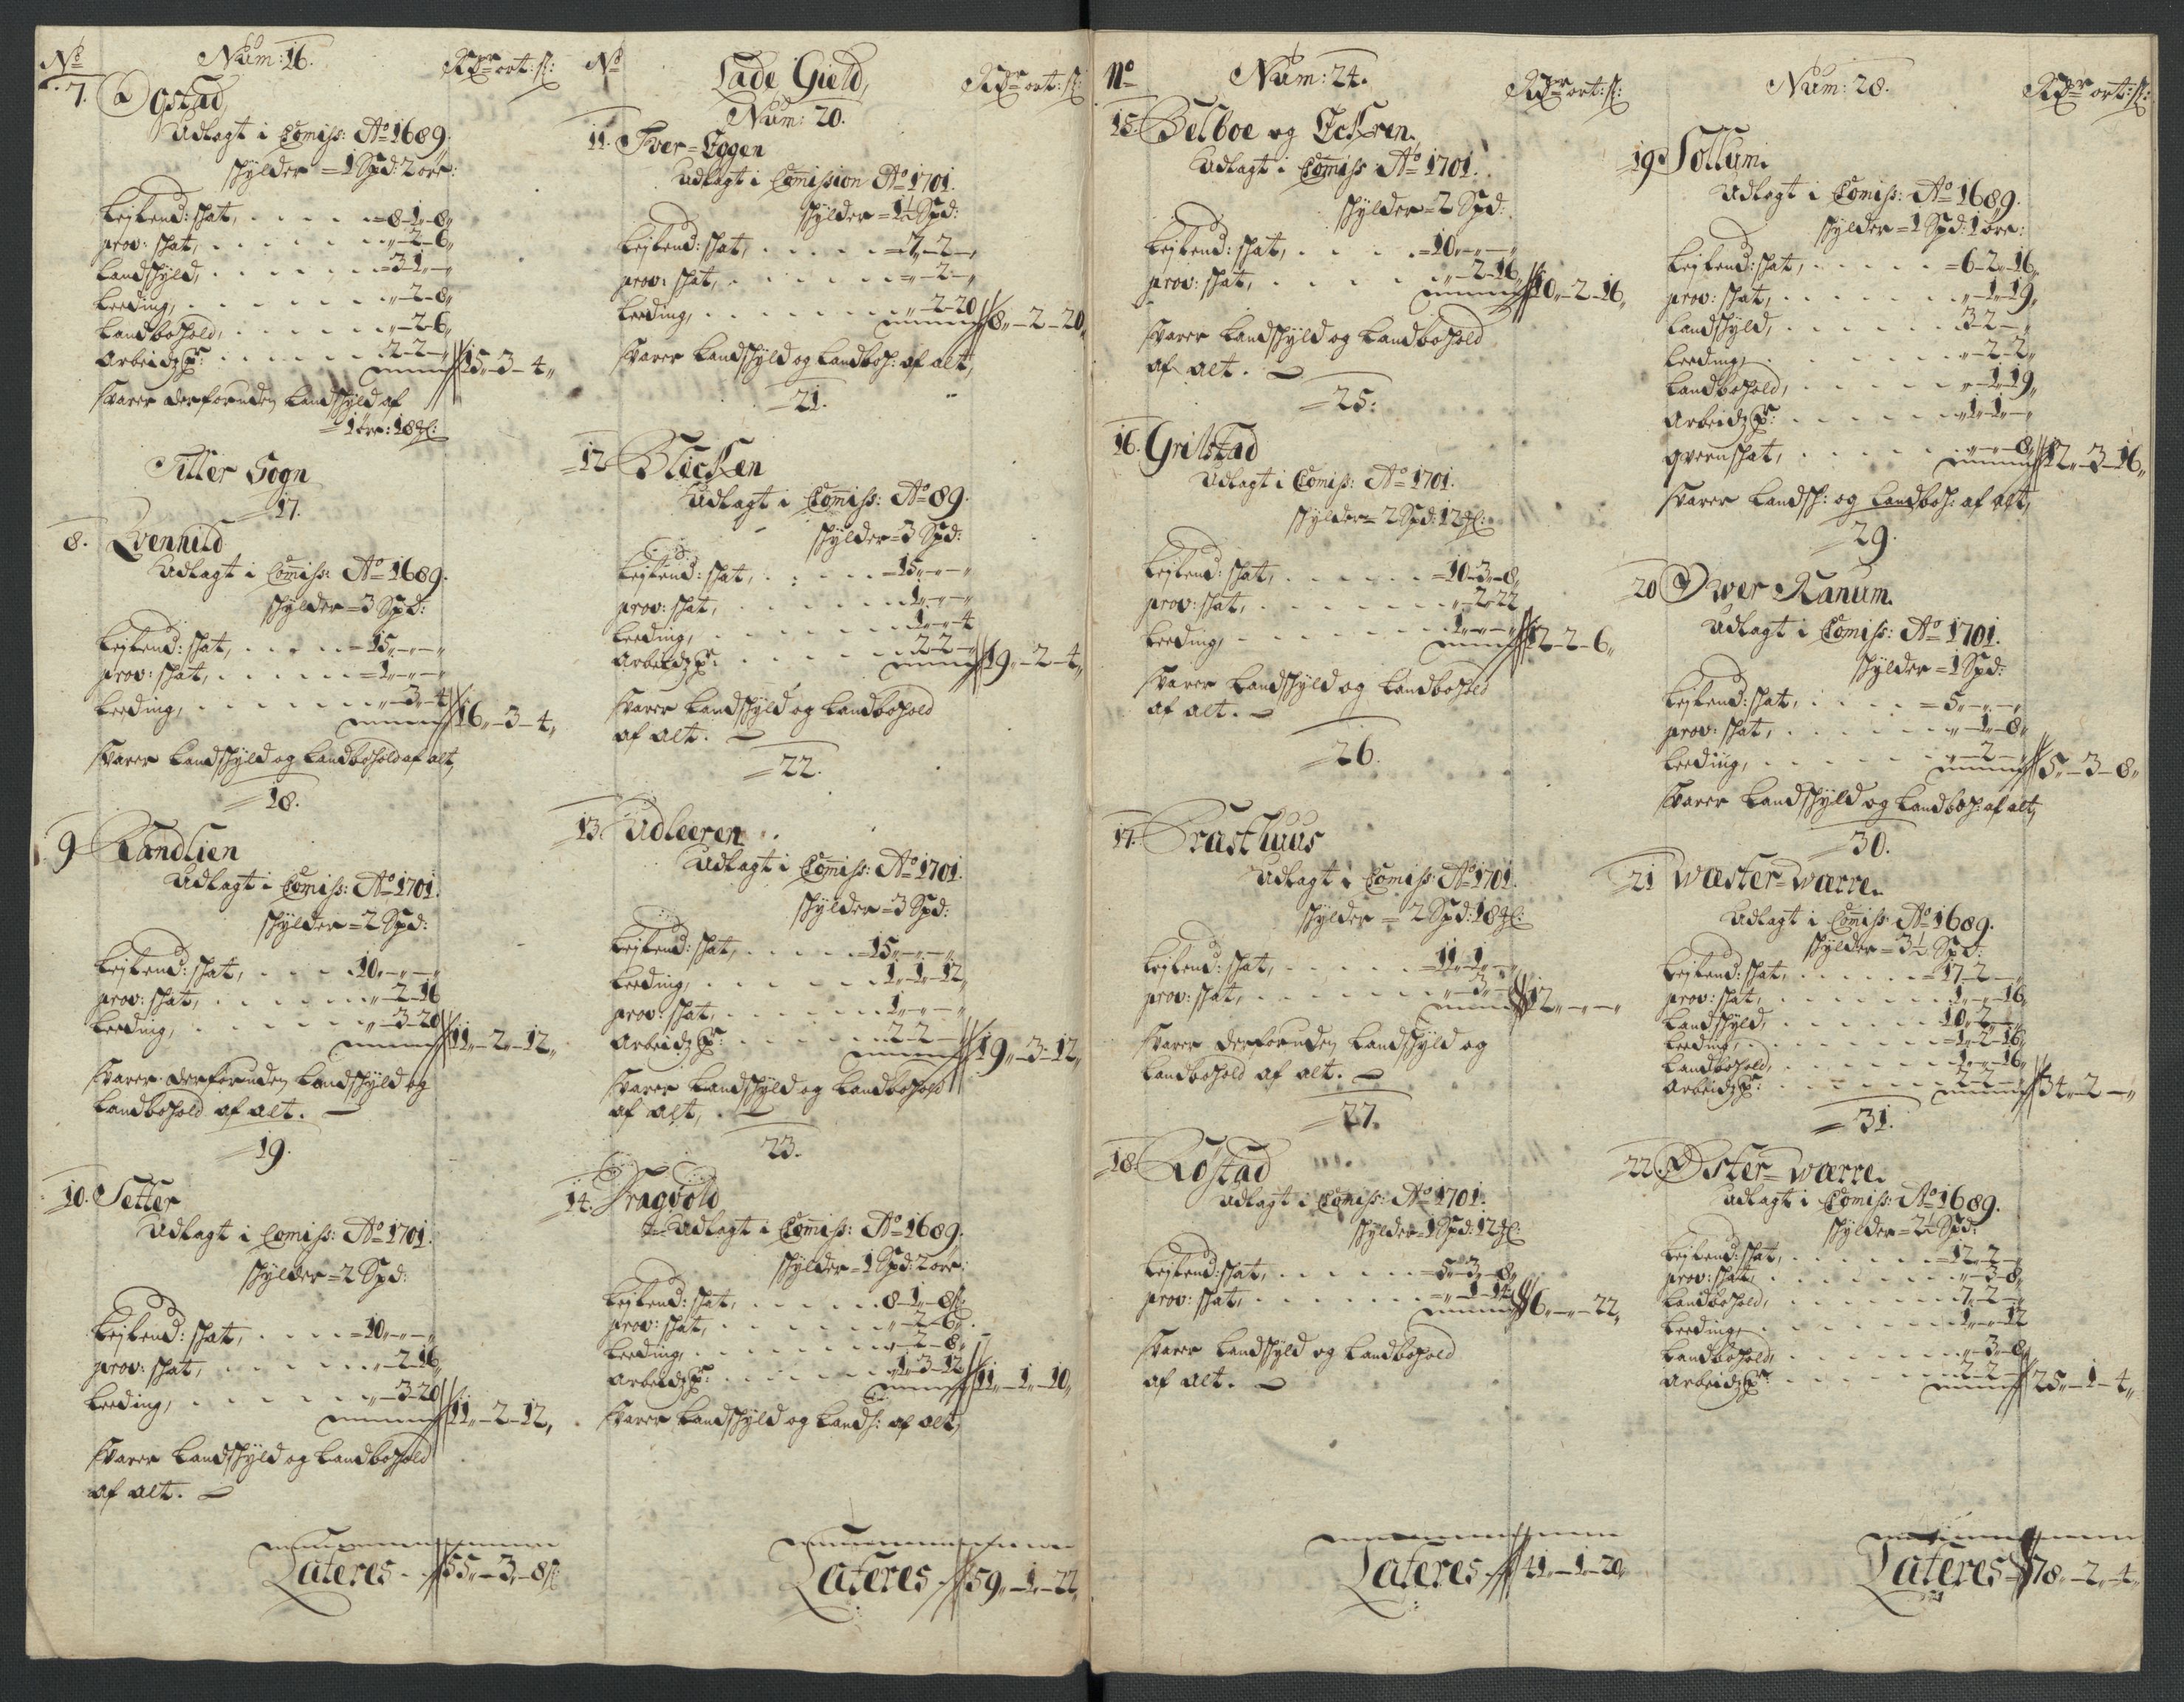 No Num: 16. Rdr ort: s:
7. Ogstad
Udlagt i Comiss: Ao 1689.
schylder = 1 Spd: 2 öre:
Lejlend: schat, . . . . =8-1-8„
prov: schat, . . . . . . „-2-6„
Landschyld, . . . . . . =3 1„-„
Leeding, . . . . . . . „-2-8„
Landbohold, . . . . . . „-2-6„
Arbeidz Pr: . . . . . . 2-2-„ 15„-3-4„
svarer derforuden Landschyld af
=1 öre: 18 gl:
Tiller Sogn
=17.
8. Qvenhild
Udlagt i Comiss: Ao 1689.
schylder = 3 Spd:
Lejlend: schat, . . . . =15„-„-„
prov: schat, . . . . . =1„-„-„
Leeding, . . . . . . . „-3-4 16„-3-4„
svarer Landschyld og Landbohold af alt,
=18.
9 Sandlien
Udlagt i Comiss: Ao 1701.
schylder = 2 Spd:
Lejlend: schat, . . . . 10„-„-„
prov: schat, . . . . . . „-2-16
Leeding, . . . . . . . „-3-20 11„-2-12„
svarer derforuden Landschyld og
Landbohold af alt.
=19.
10. Setter
Udlagt i Comiss: Ao 1701.
schylder = 2 Spd:
Lejlend: schat, . . . . =10„-„-„
prov: schat, . . . . . . „-2-16
Leeding, . . . . . . . „-3-20 11„-2-12„
svarer Landschyld og Landbohold
af alt.
Lateres - 55„-3„-8 s:
No Lade Gield, Rdr ort: s:
Num: 20.
11. Tver=Eggen
Udlagt i Comission Ao 1701.
schylder = 1½ Spd:
Lejlend: schat, . . . . =7„-2-„
prov: schat, . . . . . . =„-2-„
Leeding, . . . . . . . „-2-20 8„-2-20„
svarer Landschyld og Landboh: af alt,
=21.
12 Blecken
Udlagt i Comiss: Ao 89.
schylder = 3 Spd:
Lejlend: schat, . . . . =15„-„-„
prov: schat, . . . . . . 1„-„-„
Leeding, . . . . . . . 1„-„-4
Arbeidz Pr: . . . . . . 2-2-„ 19„-2-4„
svarer Landschyld og Landbohold
af alt.
=22.
13. Udleeren
Udlagt i Comiss: Ao 1701.
schylder = 3 Spd:
Lejlend: schat, . . . . =15„-„-„
Leeding, . . . . . . . 1„-1-12„
prov: schat, . . . . . . 1„-„-„
Arbeidz Pr: . . . . . . 2-2-„ 19„-3-12„
svarer Landschyld og Landbohold
af alt,
23.
14. Dragvold
Udlagt i Comiss: Ao 1689.
schylder = 1 Spd: 2 öre:
Lejlend: schat, . . . . 8-1-8 s:
prov: schat, . . . . . . „-2-6„
Leeding, . . . . . . . „-2-8„
Arbeidz Pr: . . . . . . „1-3-12 11„-1-10„
svarer Landschyld og Landb: af alt,
Lateres - 59„-1-22„
No Num: 24. Rdr ort: s:
15. Belboe og Eckren.
Udlagt i Comiss Ao 1701.
schylder = 2 Spd:
Lejlend: schat, . . . . =10„-„-„
prov: schat, . . . . . . „-2-16„ 10„-2-16„
svarer Landschyld og Landbohold
af alt.
=25:
16. Grilstad
Udlagt i Comiss: Ao 1701.
schylder = 2 Spd: 12 gl:
Lejlend: schat, . . . . =10-3„-8„
prov: schat, . . . . . . „-2-22
Leeding, . . . . . . . 1„-„-„ 12-2-6„
svarer Landschyld og Landbohold
af alt.
=26.
17. Prasthuus
Udlagt i Comiss: Ao 1701.
schylder = 2 Spd: 18 gl:
Lejlend: schat, . . . . =11„-1„-„
prov: schat, . . . . . . „-3„-„ 12„-„-„
svarer derforuden Landschyld og
Landbohold af alt.
=27.
18. Röstad
Udlagt i Comiss: Ao 1701.
schylder = 1 Spd: 12 gl:
Lejlend: schat, . . . . =5„-3„-8„
prov: schat, . . . . . . =„-1-14 6„-„-22„
svarer Landschyld og Landbohold
af alt.
Lateres - 41„-1-20„
Num: 28. Rdr ort: s:
19 Sollum.
Udlagt i Comiss: Ao 1689.
schylder = 1 Spd: 1 öre:
Lejlend: schat, . . . . =6-2„-16„
prov: schat, . . . . . . „-1-19„
Landschyld, . . . . . . 3 2-„
Leeding, . . . . . . . „-2-2„
Landbohold, . . . . . . „-1-19„
Arbeidz Pr: . . . . . . „1-1„-„
qvernschat, . . . . . . „-„-8„ 12„-3-16„
svarer Landsch: og Landboh: af alt,
=29.
20 Ower Ranum.
Udlagt i Comiss: Ao 1701.
schylder = 1 Spd:
Lejlend: schat, . . . . =5„-„-„
prov: schat, . . . . . . „-1-8„
Leeding, . . . . . . . „-2-„ 5„-3-8„
svarer Landschyld og Landboh: af alt,
=30.
21 Wæster=Wærre.
Udlagt i Comiss: Ao 1689.
schylder = 3½ Spd:
Lejlend: schat, . . . . =17-2-„
prov: schat, . . . . . . 1„-„-16„
Landschyld, . . . . . . 10„-2-„
Leeding, . . . . . . . =1„-2-16„
Landbohold, . . . . . . 1„-„-16„
Arbeidz Pr: . . . . . . 2-2-„ 34„-2-„
=31.
22. Öster=Wærre.
Udlagt i Comiss: Ao 1689.
schylder = 2½ Spd:
Lejlend: schat, . . . . =12„-2-„
prov: schat, . . . . . . „-3-8„
Landbohold, . . . . . . 7„-2-„
Leeding, . . . . . . . 1„-„-12
Landbohold, . . . . . . „-3-8„
Arbeidz Pr: . . . . . . 2-2-„ 25„-1-4„
Lateres - 78„-2„-4„